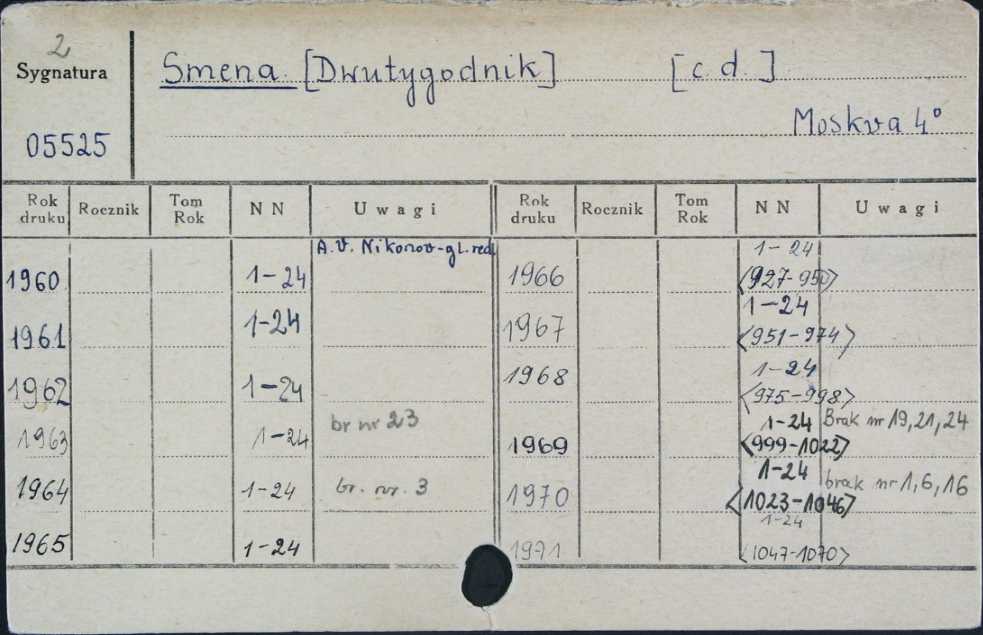 2
Sygnatura
05525
Smena [Dwutygodnik] [c.d.]
Moskva 4°
Rok druku Rocznik Tom Rok NN Uwagi Rok druku Rocznik Tom Rok NN Uwagi
1960 1-24 A.V. Nikonov-gl. red.
1961 1-24
1962 1-24
1963 1-24 br nr 23
1964 1-24 br. nr. 3
1965 1-24
1966 1-24 <927-950>
1967 1-24 <951-974>
1968 1-24 <975-998>
1969 1-24 <999-1022> Brak nr 19, 21, 24
1970 1-24 <1023-1046> brak nr 1, 6, 16
1971 1-24 <1047-1070>